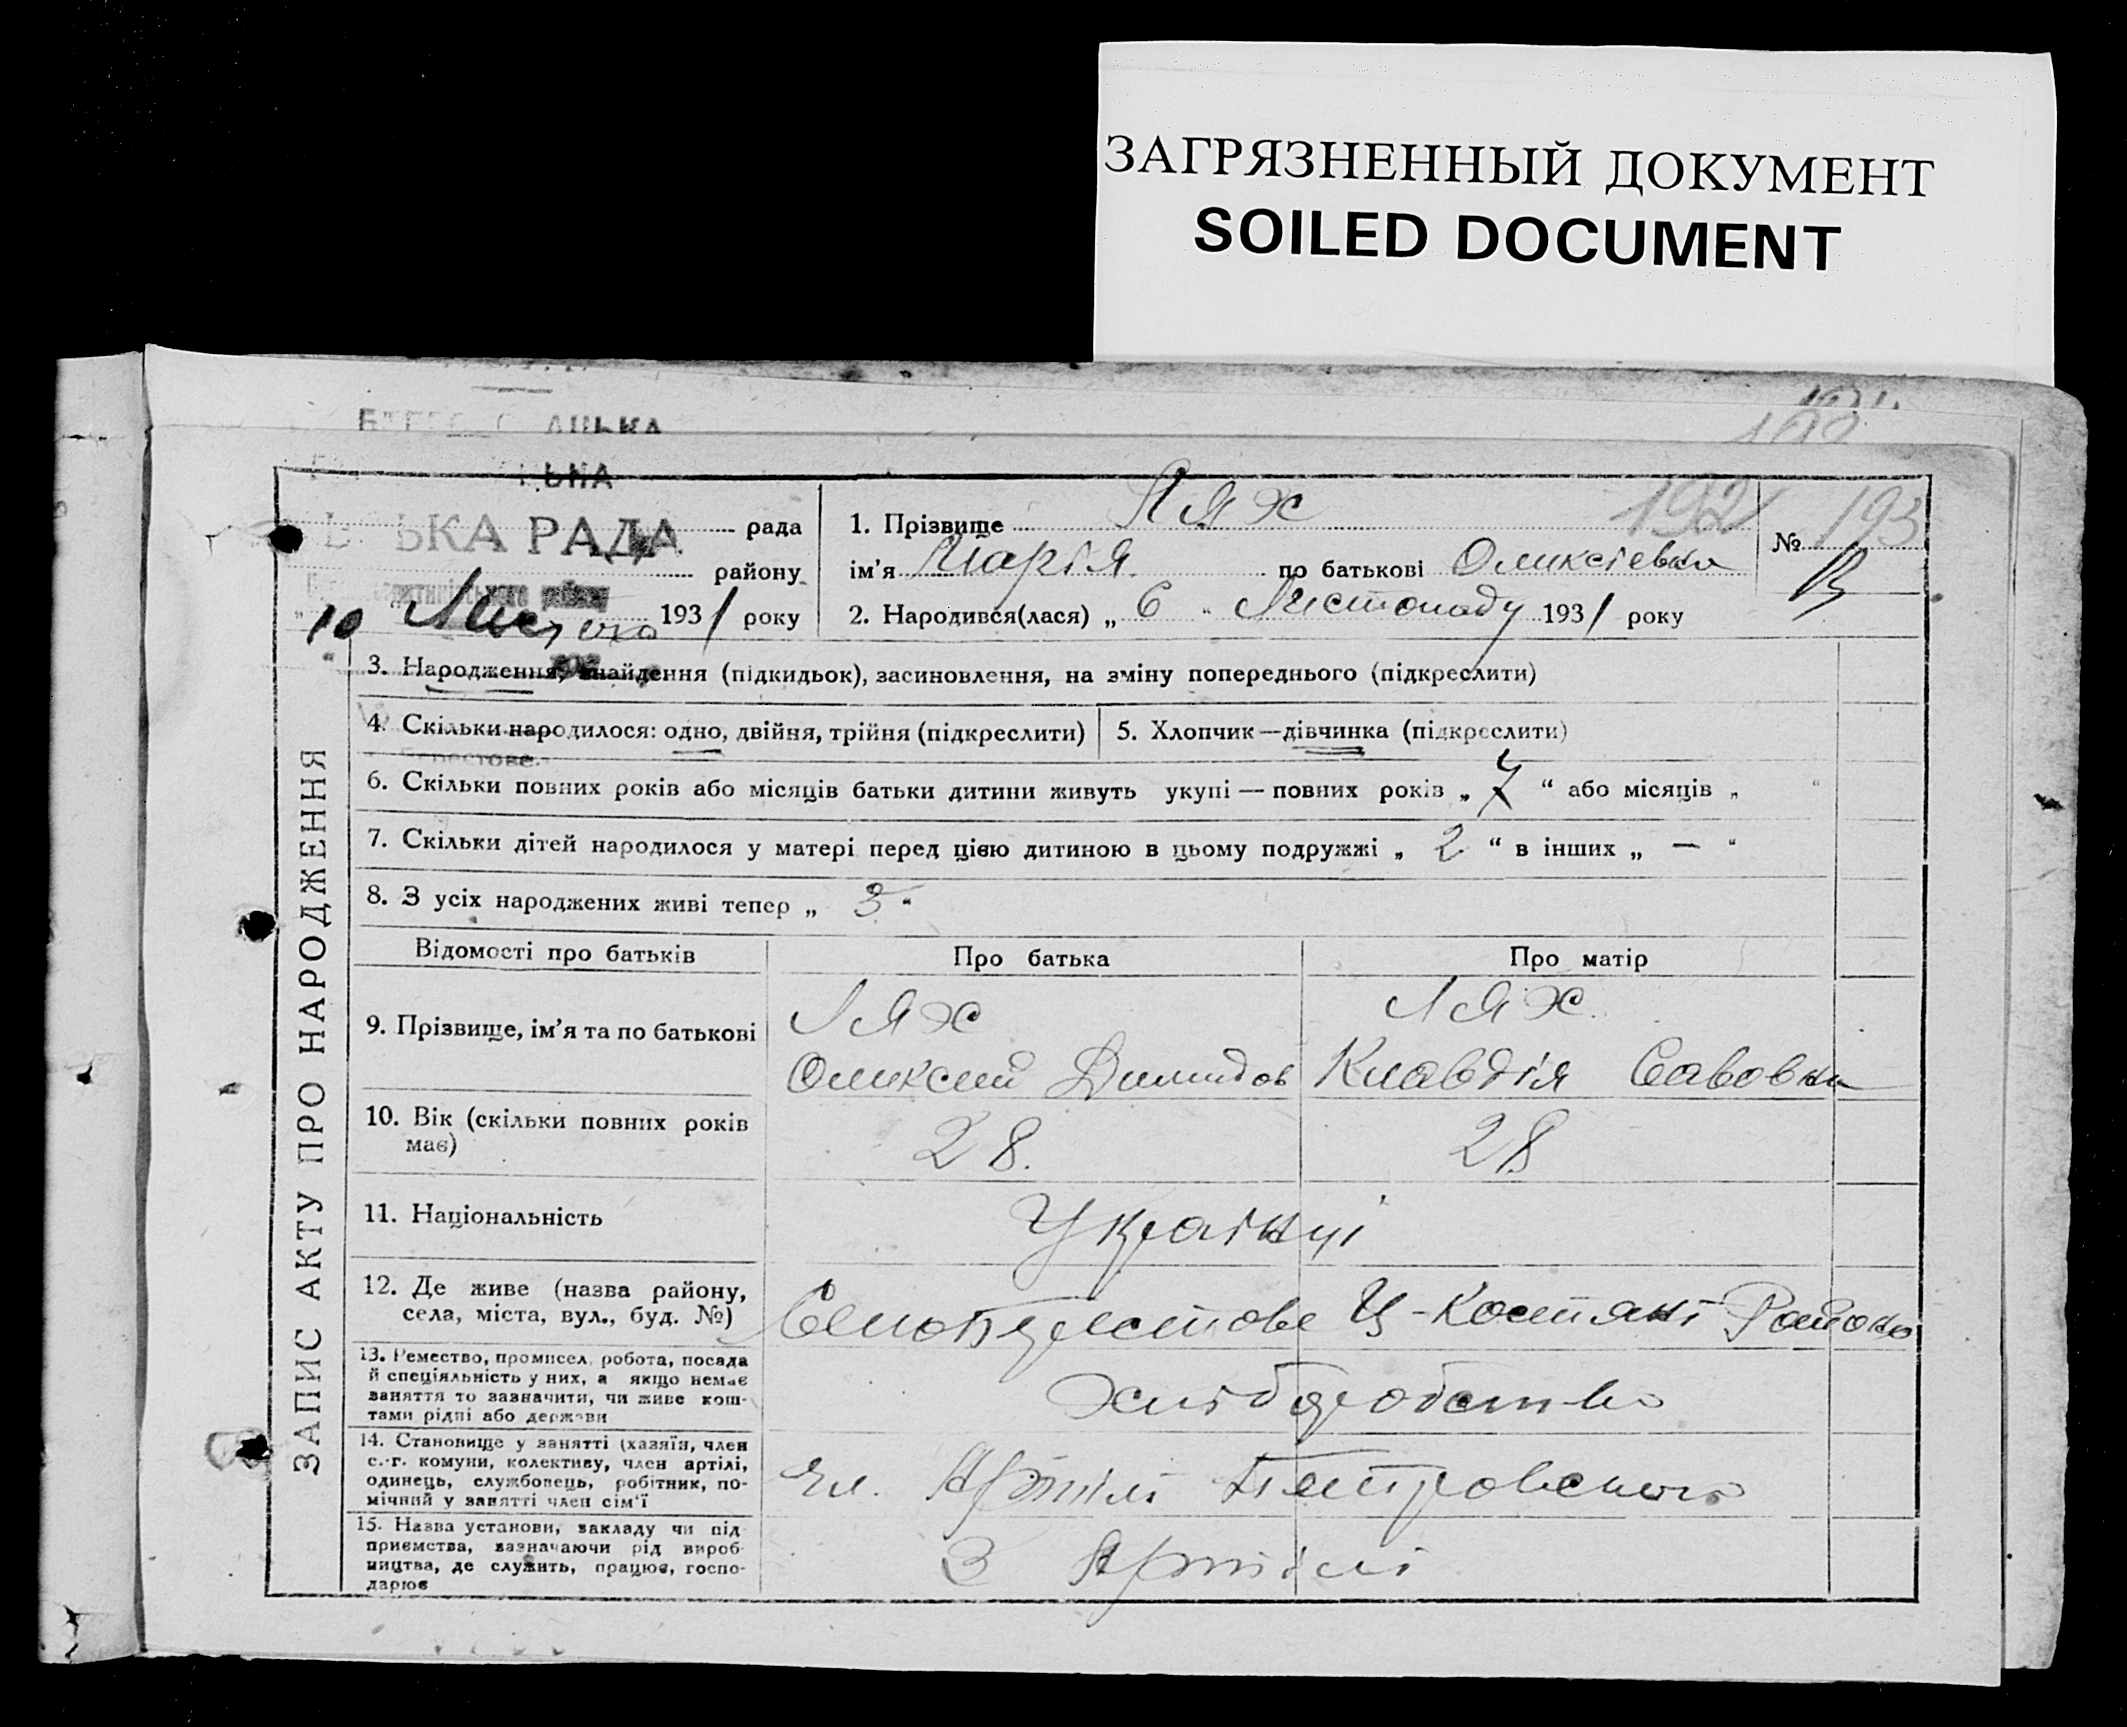 ЗАГРЯЗНЕННЫЙ ДОКУМЕНТ
SOILED DOCUMENT
192 193
ЬКА РАДА рада
району
10 193 1 року
1. Прізвище Лях
ім'я Марія по батькові Оликсієвна
№
2. Народився(лася) „ 6 " Листопаду 193 1 року
ЗАПИС АКТУ ПРО НАРОДЖЕННЯ
3. Народження, знайдення (підкидьок), засиновлення, на зміну попереднього (підкреслити)
4. Скільки народилося: одно, двійня, трійня (підкреслити)
5. Хлопчик—дівчинка (підкреслити)
6. Скільки повних років або місяців батьки дитини живуть укупі — повних років „ " або місяців „ "
7. Скільки дітей народилося у матері перед цією дитиною в цьому подружжі „ 2 " в інших „ — "
8. З усіх народжених живі тепер „ 3 "
Відомості про батьків Про батька Про матір
9. Прізвище, ім'я та по батькові
Лях Лях
Оликсій Димидов Клавдія Савовна
10. Вік (скільки повних років має)
28. 28
11. Національність
Українці
12. Де живе (назва району, села, міста, вул., буд. №)
Село Берестове Ц-Костянт Району
13. Ремество, промисел, робота, посада
й спеціяльність у них, а якщо немає
заняття то зазначити, чи живе кош-
тами рідні або держави
Хлібробство
14. Становище у занятті (хазяїн, член
с.-г. комуни, колективу, член артілі,
одинець, службовець, робітник, по-
мічний у занятті член сім'ї
Чл. Артілі Петровського
15. Назва установи, закладу чи під
приємства, зазначаючи рід вироб-
ництва, де служить, працює, госпо-
дарює
В Артілі